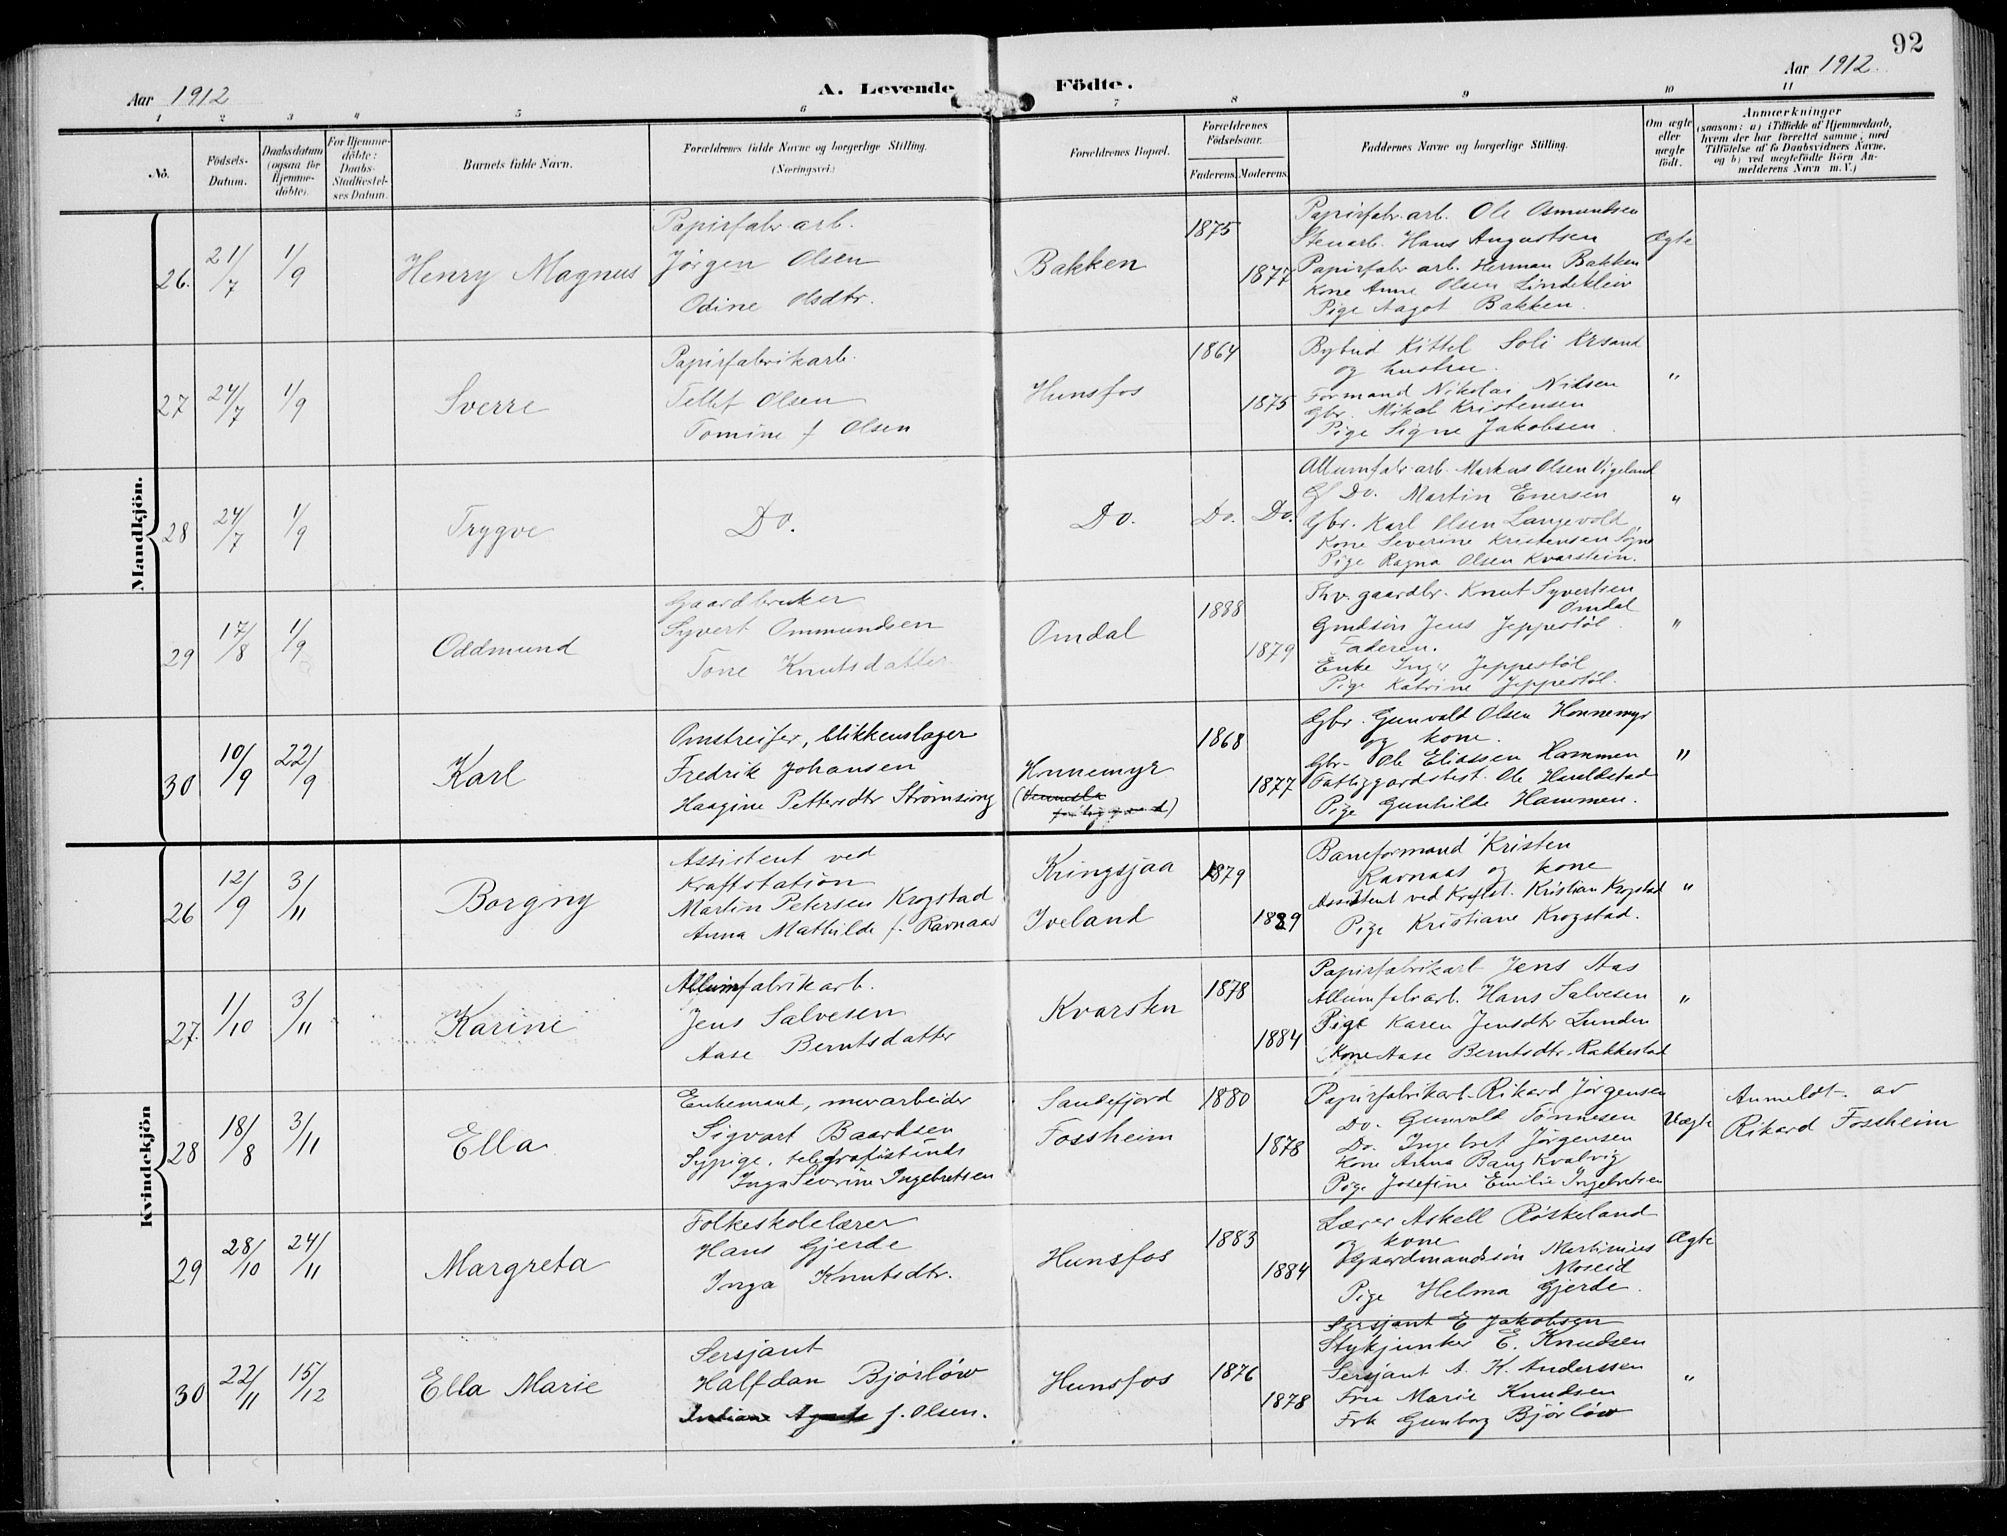 92
Aar 1912
A. Levende Födte.
Aar 1912
1 2 3 4 5 6 7 8 9 10 11
No.
Födsels-
Datum.
Daabsdatum
(ogsaa for
Hjemme-
döbte).
For Hjemme-
döbte:
Daabs-
Stadfæstel-
ses Datum.
Barnets fulde Navn.
Forældrenes fulde Navne og borgerlige Stilling.
(Næringsvei.)
Forældrenes Bopæl.
Forældrenes
Födselsaar.
Faderens. Moderens.
Faddernes Navne og borgerlige Stilling.
Om ægte
eller
uægte
födt.
Anmærkninger
(saasom: a) i Tilfælde af Hjemmedaab,
hvem der har forrettet samme, med
Tilföielse af to Daabsvidners Navne,
og b) ved uægtefödte Börn An-
melderens Navn m. V.)
Mandkjön.
26. 21/7 1/9 Henry Magnus
Papirfabr. arb.
Jørgen Olsen
Odine Olsdtr.
Bakken
1875
1877
Papirfabr. arb. Ole Osmundsen
Stenarb. Hans Augustsen
Papirfabr arb. Herman Bakken
Kone Anne Olsen Lindekleiv
Pige Aagot Bakken.
Ægte
27 24/7 1/9 Sverre
Papirfabrikarb.
Tellef Olsen
Tomine f Olsen
Hunsfos
1864
1875
Bybud Kittel Soli Krsand
og hustru.
Formand Nikolai Nilsen
Gbr. Mikal Kristensen
Pige Signe Jakobsen.
"
28 24/7 1/9 Trygve
Do.
Do.
Do. Do.
Allumfabr. arb. Markus Olsen Vigeland
Do. Martin Enersen
Gbr. Karl Olsen Langevold
Kone Severine Kristensen Søgne
Pige Ragna Olsen Kvarstein.
"
29 17/8 1/9 Oddmund
Gaardbruker
Syvert Ommundsen
Tone Knutsdatter
Omdal
1888
1879
Fhv. gaardbr. Knut Syvertsen
Omdal
Gmdsøn Jens Jeppestøl
Faderen.
Enke Inger Jeppestøl
Pige Katrine Jeppestøl.
"
30 10/9 22/9 Karl
Omstreifer, blikkenslager
Fredrik Johansen
Haagine Pettersdtr Strømsing
Honnemyr
(Vennesla
fattiggaard)
1868
1877
Gbr. Gunvald Olsen Honnemyr
og kone.
Gbr. Ole Eliassen Hammen
Fattiggardsbest. Ole Haaldstad
Pige Gunhilde Hammen.
"
Kvindekjön
26 12/9 3/11 Borgny
Assistent ved
Kraftstation
Martin Petersen Krogstad
Anna Mathilde f. Ravnaas
Kringsjaa
Iveland
1879
1889
Baneformand Kristen
Ravnaas og kone
Assistent ved Kraftst. Kristian Krogstad
Pige Kristiane Krogstad.
"
27. 1/10 3/11 Karine
Allumfabrikarb.
Jens Salvesen
Aase Berntsdatter
Kvarsten
1878
1884
Papirfabrikarb Jens Aas
Allumfabrarb. Hans Salvesen
Pige Karen Jensdtr Lunden
Kone Aase Berntsdtr. Rakkestad
"
28 18/8 3/11 Ella
Enkemand, murarbeider
Sigvart Baardsen
Sypige, telegrafistinde
Inga Severine Ingebretsen
Sandefjord
Fossheim
1880
1878
Papirfabrikarb. Rikard Jørgensen
Do. Gunvald Tønnesen
Do. Ingebret Jørgensen
Kone Anna Bang Kvalvig
Pige Josefine Emilie Ingebretsen
Uægte
Anmeldt av
Rikard Fossheim
29 28/10 24/11 Margreta
Folkeskolelærer
Hans Gjerde
Inga Knutsdtr.
Hunsfos
1883
1884
Lærer Askell Røskeland
og kone
Gaardmandssøn Martinius
Moseid
Pige Helma Gjerde.
Ægte
30 22/11 15/12 Ella Marie
Sersjant
Halfdan Bjørløw
f. Olsen.
Hunsfos
1876
1878
Sersjant E Jakobsen
Stykjunker E. Knudsen
Sersjant A. K. Anderssen
Fru Marie Knudsen
Frk Gunborg Bjørløw
"